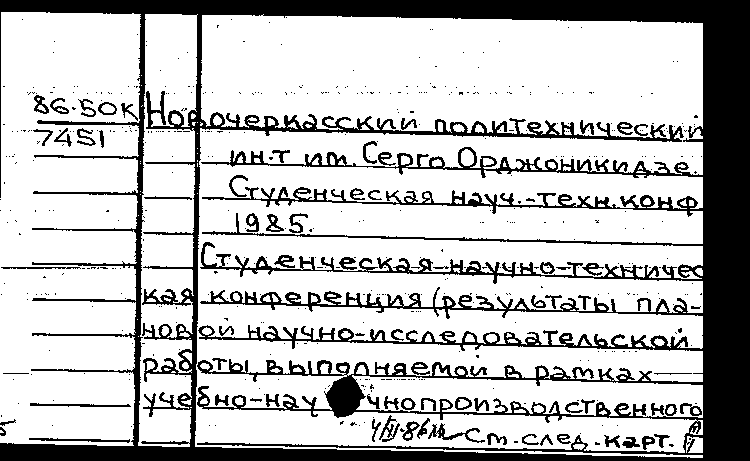 86-50К Новочеркасский политехнический
7451
ин-т им. Серго Орджоникидзе.
Студенческая науч.-техн. конф
1985.
Студенческая научно-техничес
кая конференция (результаты пла-
новой научно-исследовательской
работы, выполняемой в рамках
учебно-нау чнопроизводственного
См. след. карт.